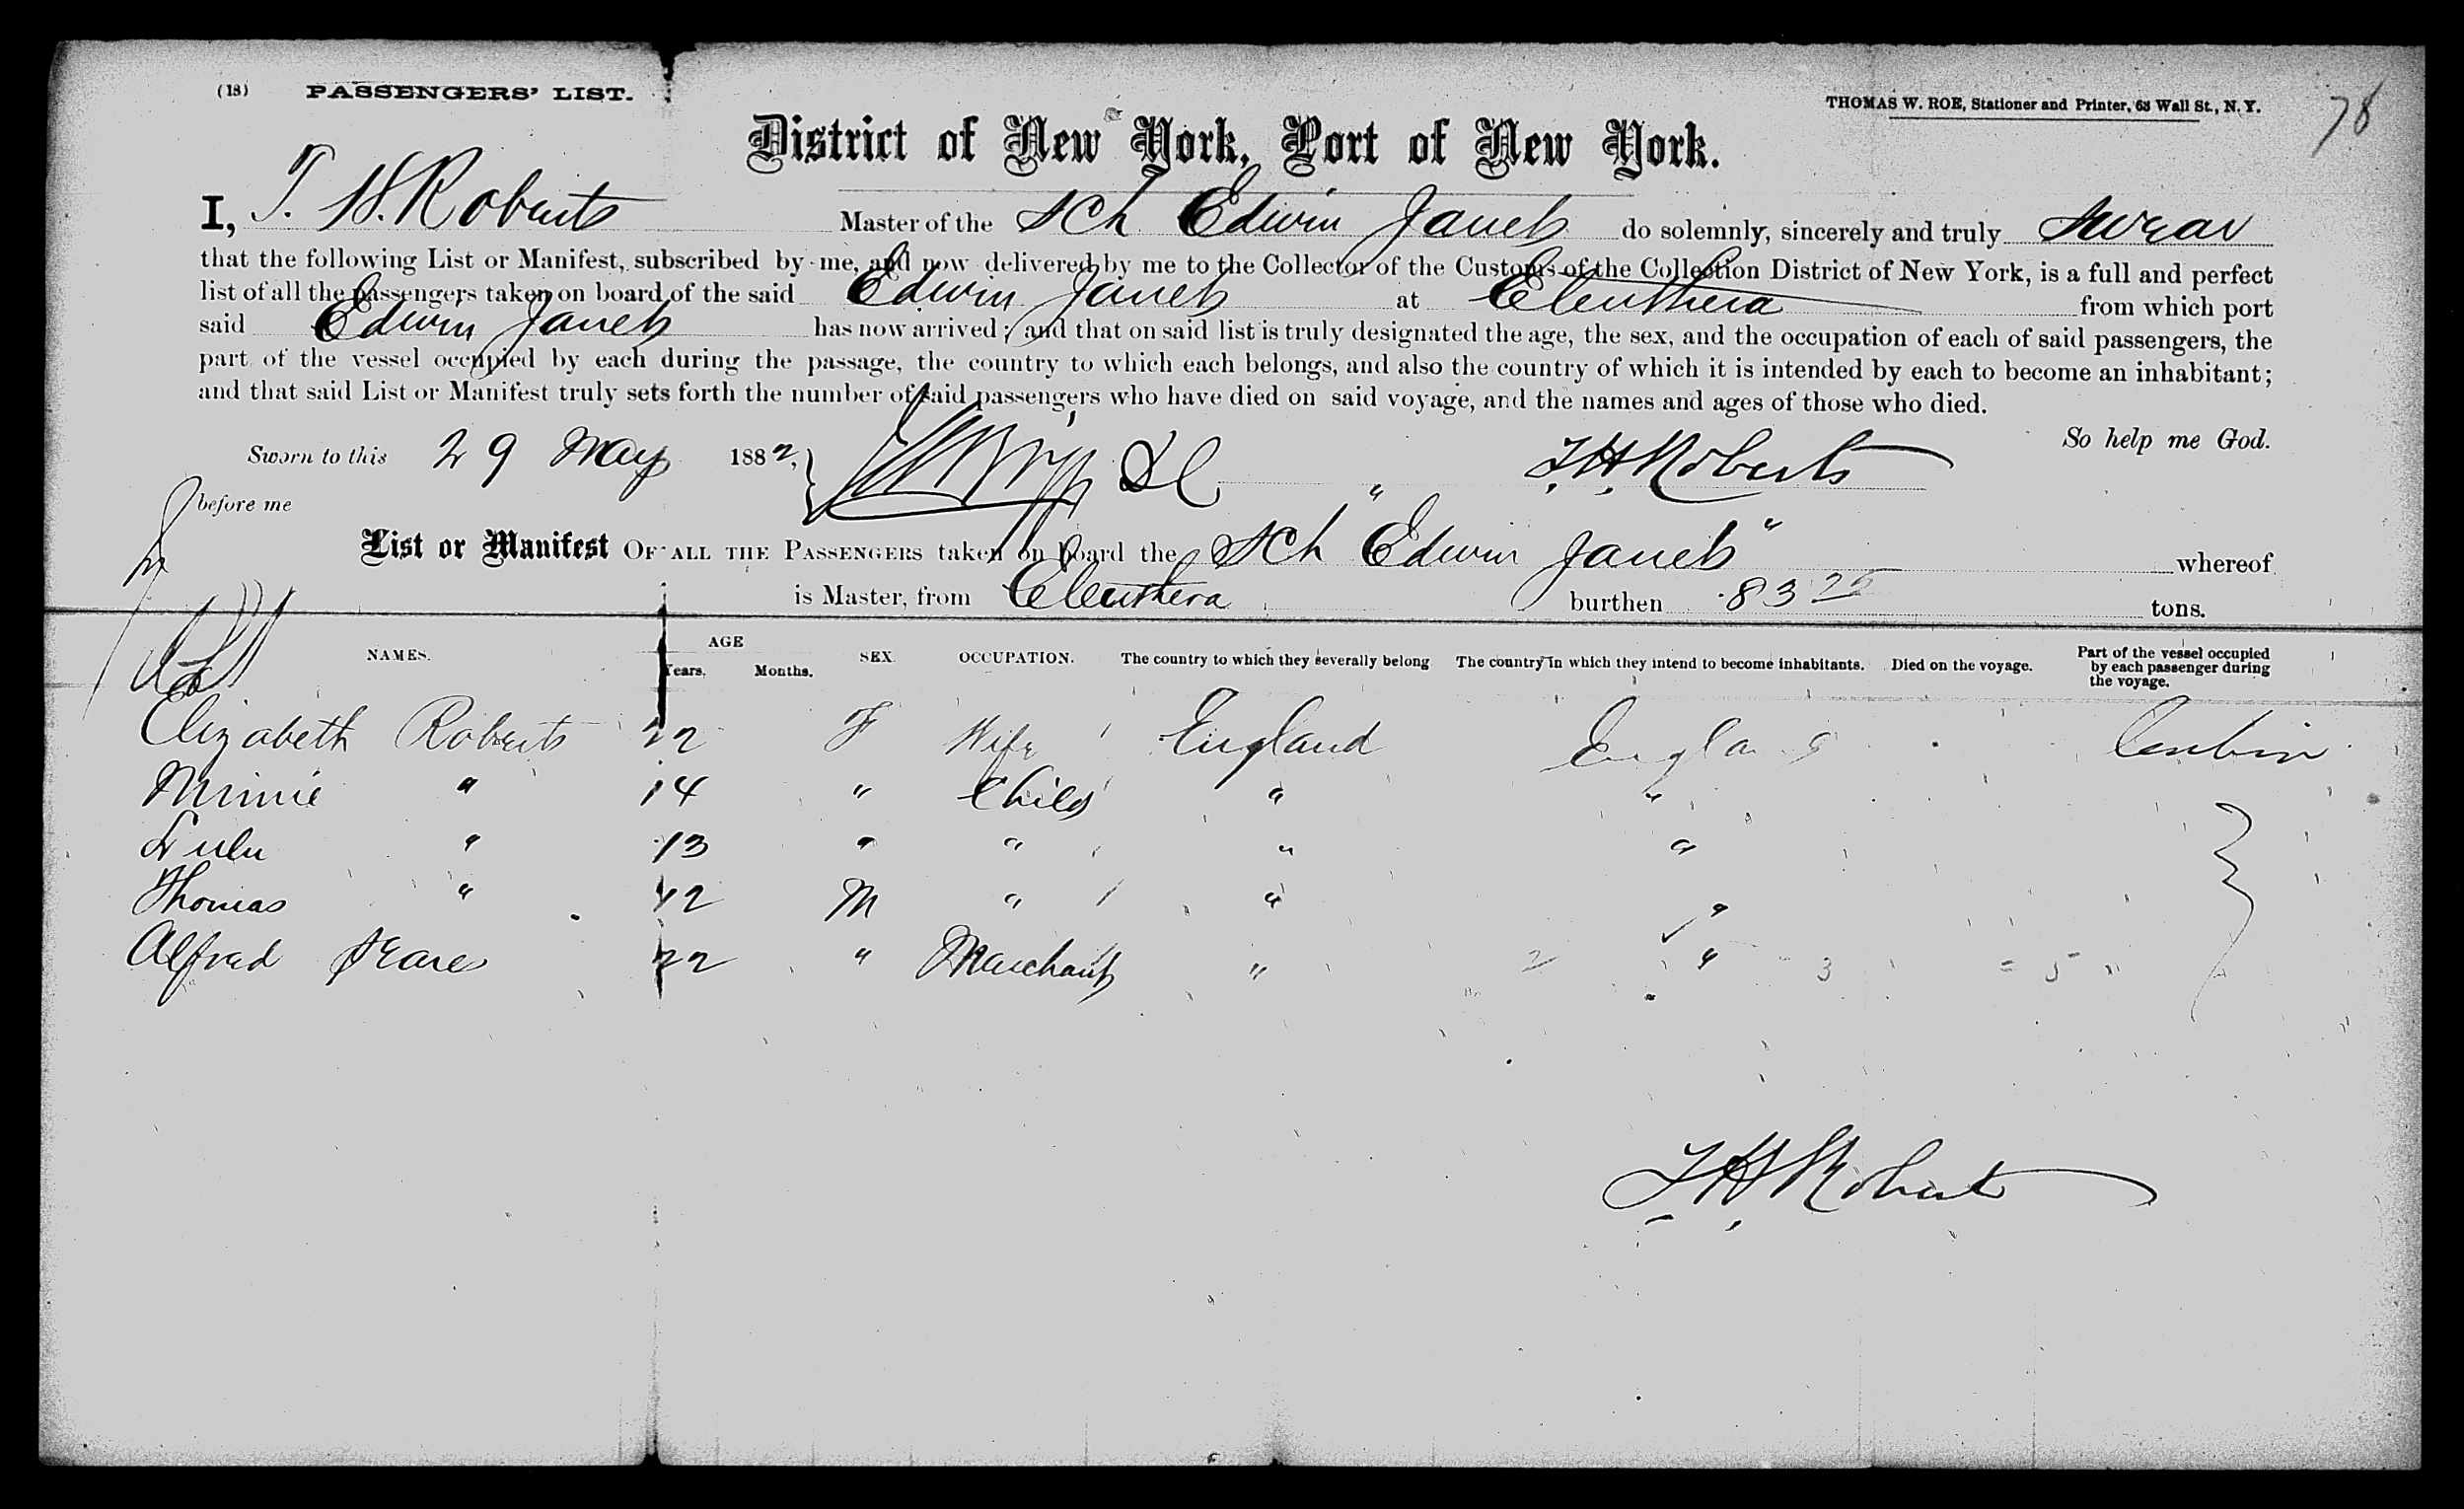 (18) PASSENGERS' LIST.
THOMAS W. ROE, Stationer and Printer, 63 Wall St., N. Y.
78
District of New York, Port of New York.
I, T. H. Roberts Master of the Sch Edwin Janet do solemnly, sincerely and truly swear
that the following List or Manifest, subscribed by me, and now delivered by me to the Collector of the Customs of the Collection District of New York, is a full and perfect
list of all the passengers taken on board of the said Edwin Janet at Eleuthera from which port
said Edwin Janet has now arrived; and that on said list is truly designated the age, the sex, and the occupation of each of said passengers, the
part of the vessel occupied by each during the passage, the country to which each belongs, and also the country of which it is intended by each to become an inhabitant;
and that said List or Manifest truly sets forth the number of said passengers who have died on said voyage, and the names and ages of those who died.
So help me God.
Sworn to this 29 May 1882, T. H. Roberts
before me
List or Manifest OF ALL THE PASSENGERS taken on board the Sch "Edwin Janet" whereof
is Master, from Eleuthera burthen 83 25 tons.
NAMES. AGE Years. Months. SEX. OCCUPATION. The country to which they severally belong The country in which they intend to become inhabitants. Died on the voyage. Part of the vessel occupied by each passenger during the voyage.
Elizabeth Roberts 22 F Wife England England Cabin
Minnie " 14 " Child " "
Lulu " 13 " " " "
Thomas " 12 M " " "
Alfred Seares 22 " Merchant " 2 " 3 = 5
T. H. Roberts